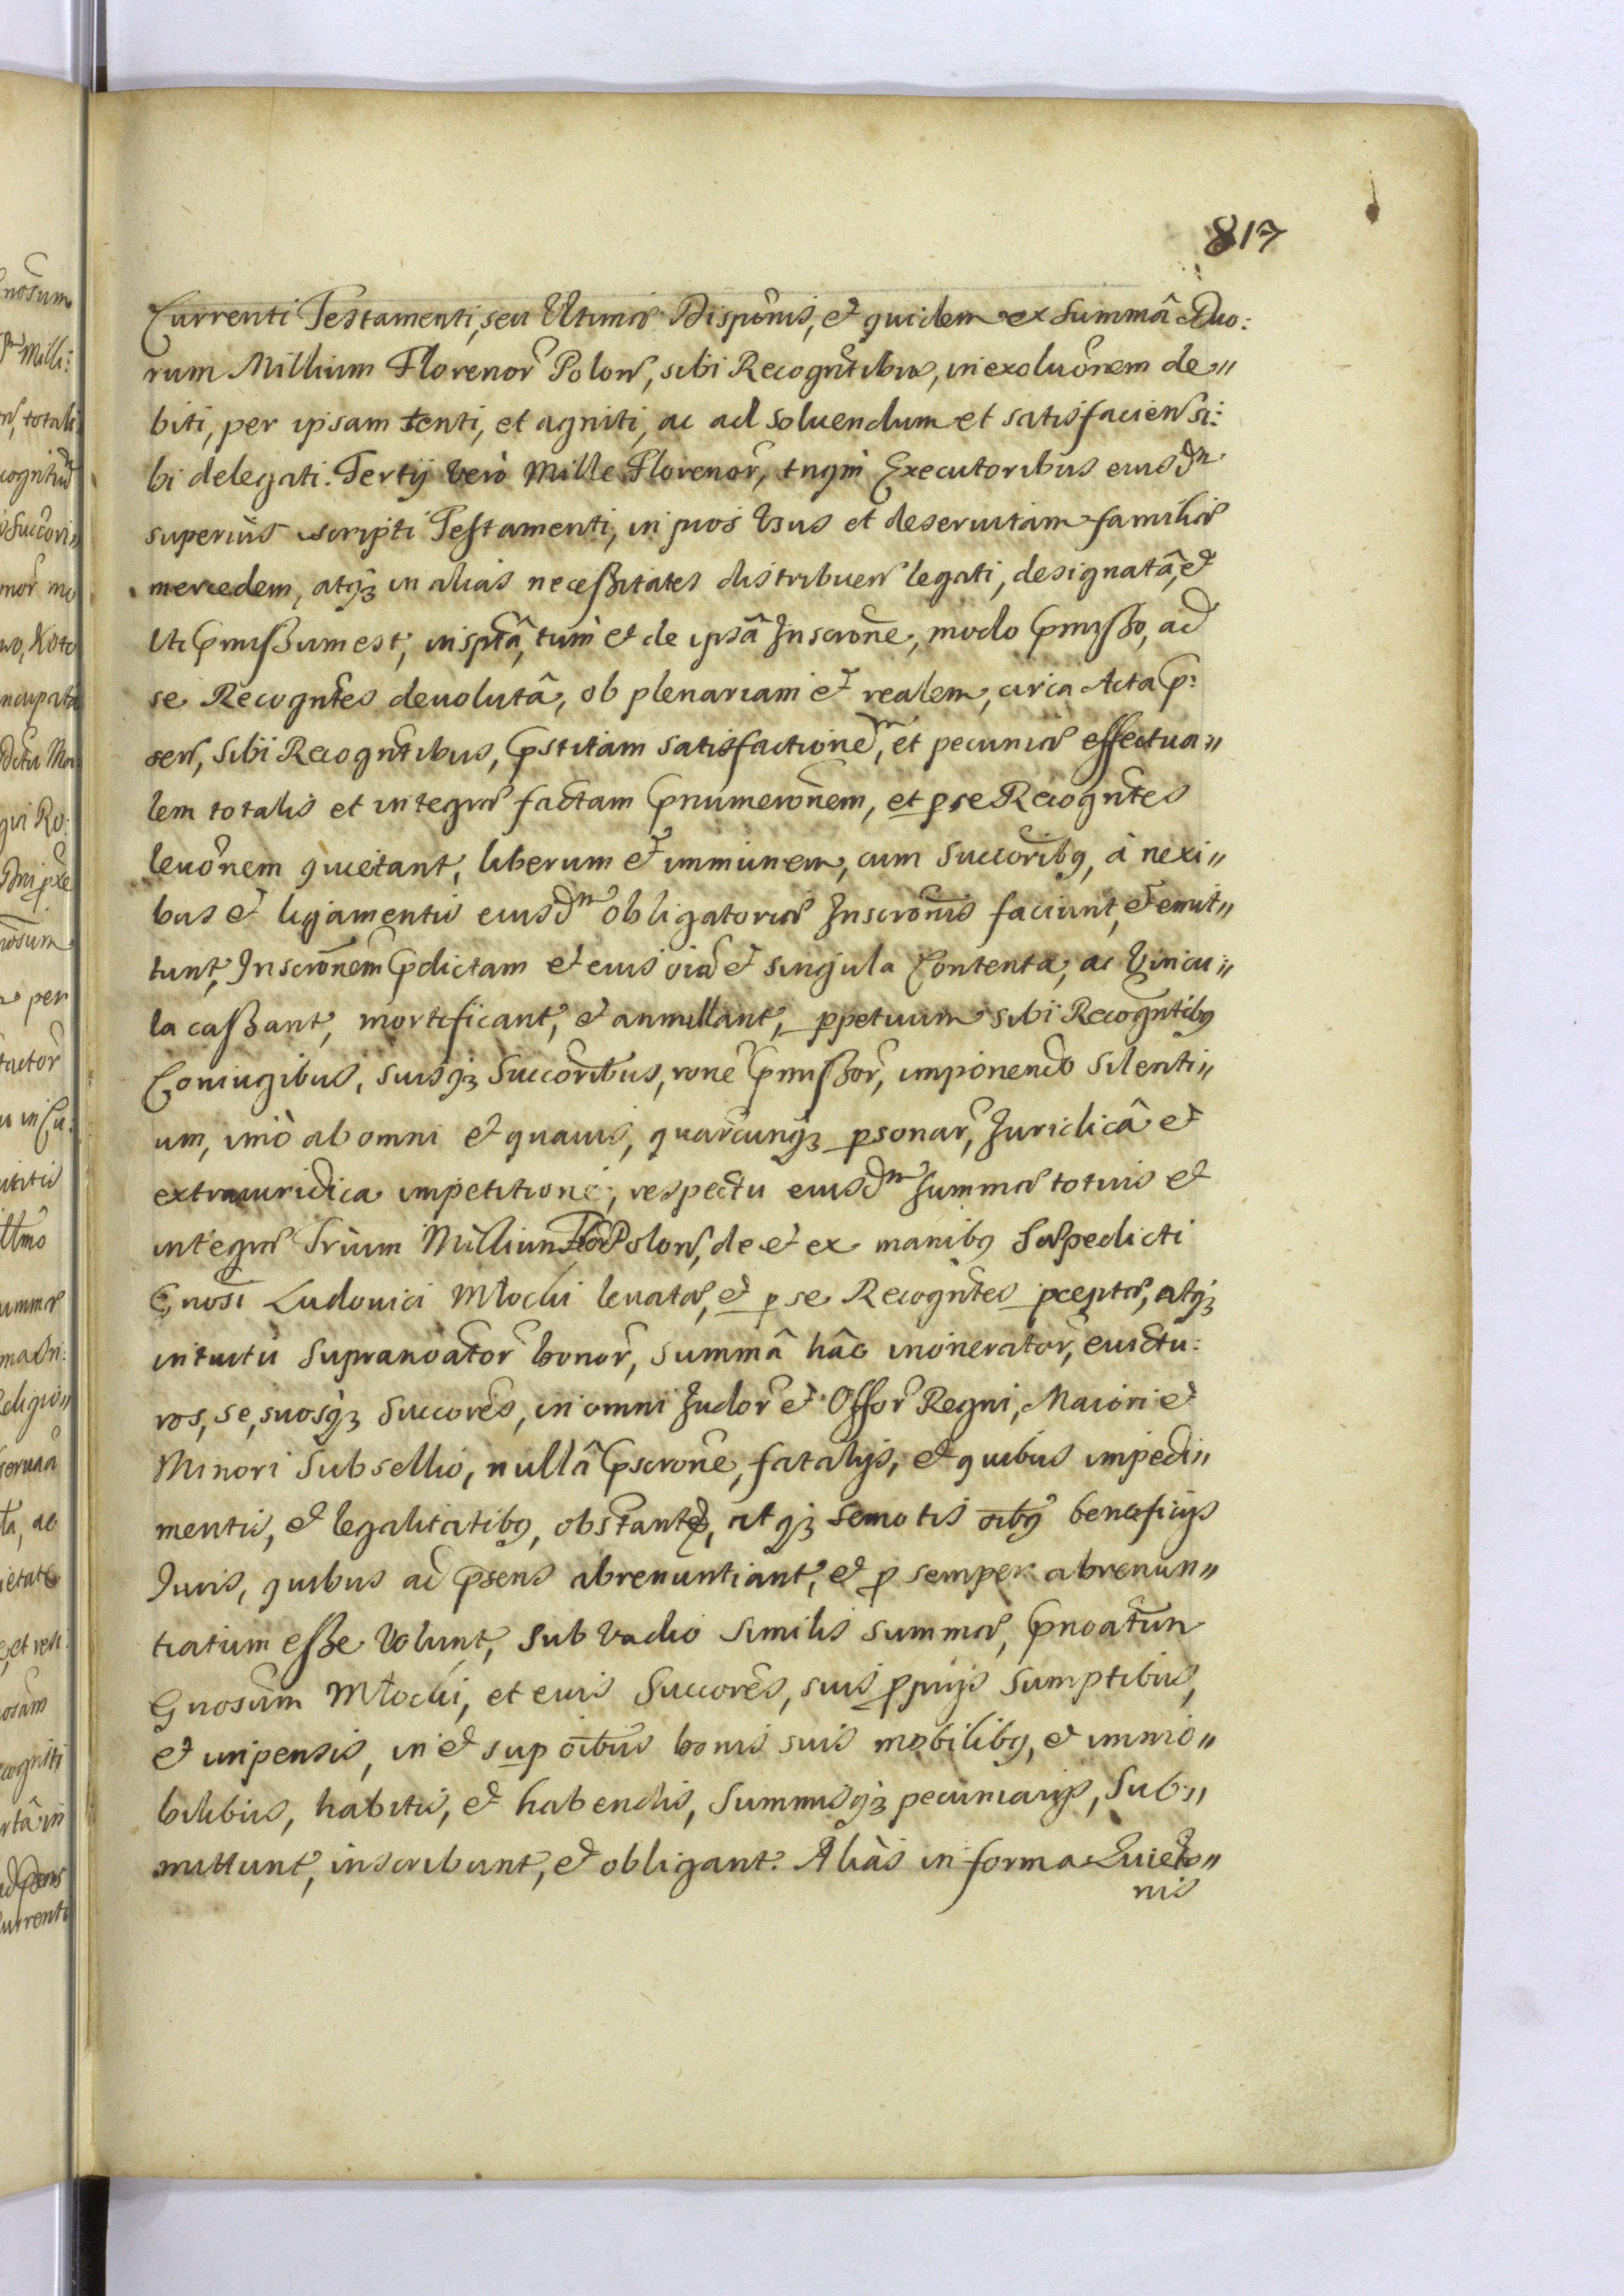 817
Currenti Testamenti, seu Ultimæ Dispõnis, et quidem ex Summâ Duo:
rum Millium Florenor̃ Polon̄, sibi Recogñtibus, in exoluõnem de„
biti, per ipsam tenti, et agniti, ac ad soluendum et satisfacien̄ si:
bi delegati. Tertij verò Mille Florenor̃, tnq̃m Executoribus eiusdm̃
superius scripti Testamenti, in pios Usus et deseruitam familiæ
mercedem, atq3 in alias neceßitates distribuen̄ legati, designatâ, et
Uti p̃mißum est, inscp̃tâ, tum et de ipsâ Inscrõne, modo p̃mißo, ad
se Recogñtes deuolutâ, ob plenariam et realem, circa Acta p̃:
sen̄, sibi Recogñtibus, p̃stitam satisfactionem, et pecuniæ effectua„
lem totalis et integræ factam p̃numerõnem, et p se Recogñtes
leuõnem quietant, liberum et immunem, cum Succorib9, à nexi„
bus et ligamentis eiusdm̃ Obligatoriæ Inscrõnis faciunt, et emit„
tunt, Inscrõnem p̃dictam et eius oĩa et singula Contenta, ac Vincu„
la caßant, mortificant, et annullant, ppetuum sibi Recogñtib9
Coniugibus, suisq3 Succoribus, rõne p̃mißor̃, imponendo silenti„
um, imò ab omni et quauis, quarũcunq3 psonar̃, Juridicâ et
extraiuridica impetitione, respectu eiusdm̃ Summæ totius et
integræ Trium Millium Flor̃ Polon̄, de et ex manib9 Sæpedicti
Gnosi Ludouici Młocki leuatæ, et p se Recogñtes pceptæ, atq3
intuitu Supranoãtor̃ bonor̃, summâ hâc inonerator̃, euictu:
ros, se, suosq3 Succores, in omni Judor̃ et Offor̃ Regni, Maiori et
Minori Subsellio, nullâ p̃scrõne, fatalijs, et quibus impedi„
mentis, et legalitatib9, obstante, atq3 semotis oĩb9 beneficijs
Juris, quibus ad p̃sens abrenuntiant, et p semper abrenun„
tiatum eße Volunt, sub vadio similis summæ, p̃noatum
Gnosum Młocki, et eius Succores, suis pprijs sumptibus,
et impensis, in et sup oĩbus bonis suis mobilib9, et immo„
bilibus, habitis, et habendis, Summisq3 pecuniarijs, Sub„
mittunt, inscribunt, et obligant. Aliàs in forma Quieto„
nis